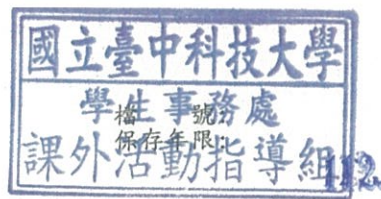 國立臺中科技大學
學生事務處
檔 號:
保存年限:
課外活動指導組
112